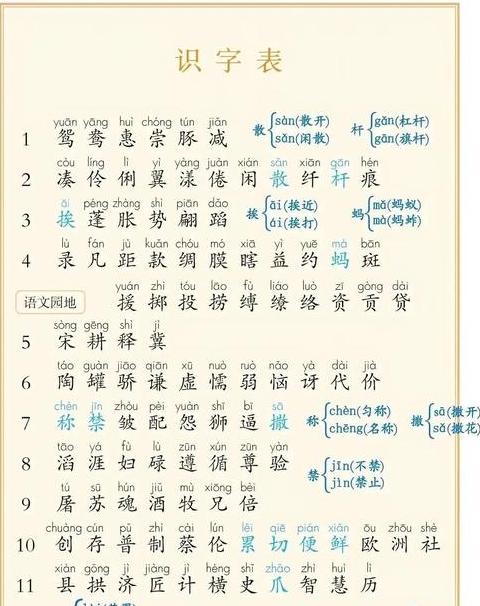 识字表
yuān yāng huì chóng tún jiǎn
1 鸳 鸯 惠 崇 豚 减
散 sàn(散开) sǎn(闲散)
杆 gǎn(杠杆) gān(旗杆)
còu líng lì yì yàng juàn xián sǎn xiān gān hén
2 凑 伶 俐 翼 漾 倦 闲 散 纤 杆 痕
āi péng zhàng shì piān dǎo
3 挨 蓬 胀 势 翩 蹈
挨 āi(挨近) ái(挨打)
蚂 mǎ(蚂蚁) mà(蚂蚱)
lù fán jù kuǎn chóu mó xiā yì yuē mà bān
4 录 凡 距 款 绸 膜 瞎 益 约 蚂 斑
yuán zhì tóu lāo fù liáo luò zī gòng dài
语文园地 援 掷 投 捞 缚 缭 络 资 贡 贷
sòng gēng shì jì
5 宋 耕 释 冀
táo guàn jiāo qiān xū nuò ruò nǎo yà dài jià
6 陶 罐 骄 谦 虚 懦 弱 恼 讶 代 价
chèn jīn zhòu pèi yuàn shī bī sā
7 称 禁 皱 配 怨 狮 逼 撒
称 chèn(匀称) chēng(名称)
撒 sā(撒开) sǎ(撒花)
tāo yá fù lù zūn xún zūn yàn
8 滔 涯 妇 碌 遵 循 尊 验
禁 jīn(不禁) jìn(禁止)
tú sū hún jiǔ mù xiōng bèi
9 屠 苏 魂 酒 牧 兄 倍
chuàng cún pǔ zhì cài lún lěi qiē pián xiān ōu zhōu shè
10 创 存 普 制 蔡 伦 累 切 便 鲜 欧 洲 社
xiàn gǒng jì jiàng jì héng shǐ zhǎo zhì huì lì
11 县 拱 济 匠 计 横 史 爪 智 慧 历